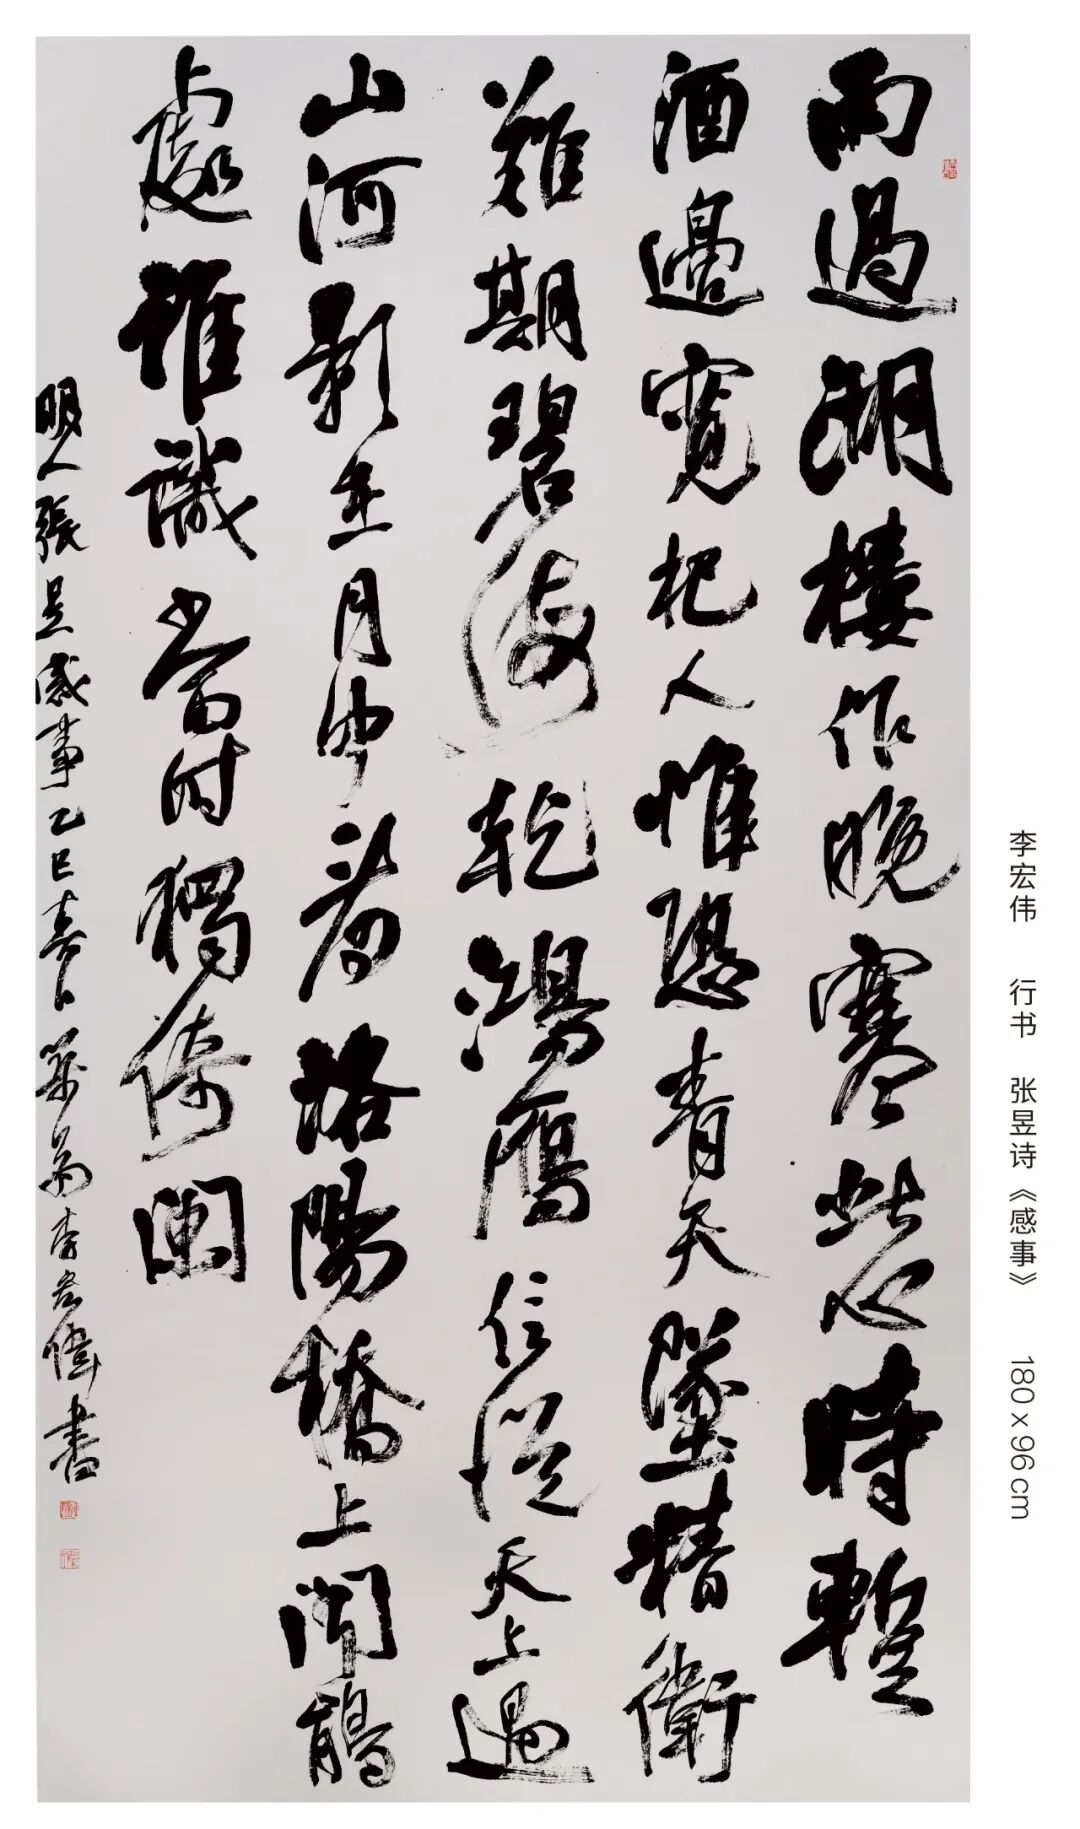 雨過湖樓作晚寒此心時暫
酒邊寬杞人惟恐青天墜精衛
難期碧海乾鴻雁信從天上過
山河影在月中看洛陽橋上聞鵑
處誰識當時獨倚闌
明人張昱感事乙巳春日 李宏偉書
李宏伟 行书 张昱诗《感事》 180 x 96 cm